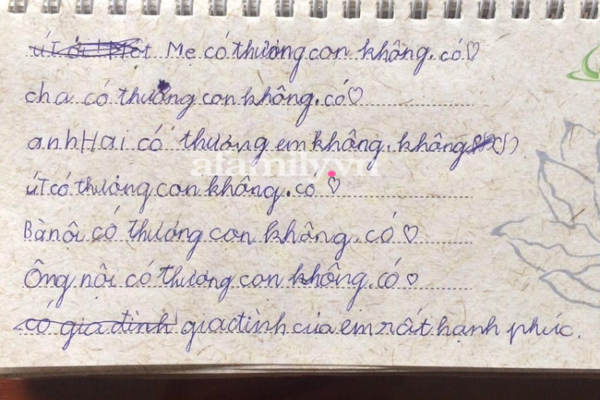 Mẹ có thương con không. có♡
cha có thương con không. có♡
anh Hai có thương em không. không
afamily.vn
út có thương con không. co ♡
Bà nôi có thương con không. có♡
Ông nội có thương con không. có♡
có gia đình gia đình của em rất hạnh phúc.